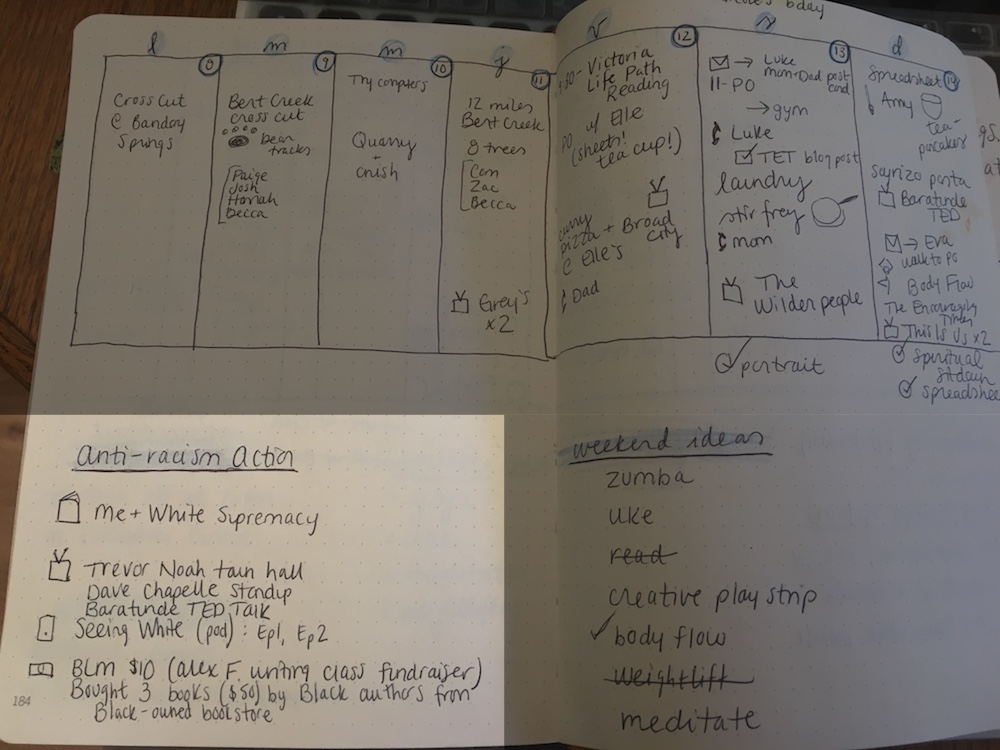 bday
l
m
m
j
v
s
d
8
Cross Cut
@ Bandoy
Springs
9
Bert Creek
cross cut
bear
tracks
Paige
Josh
Hannah
Becca
10
Try computers
Quarry
+
crush
11
12 miles
Bert Creek
8 trees
Cam
Zac
Becca
Grey's
x2
12
Victoria
Life Path
Reading
PO w/ Elle
(sheets!
tea cup!)
curry
pizza + Broad
City
@ Elle's
Dad
13
→ Luke
mom+Dad post
card
11-PO
→ gym
Luke
TET blog post
laundry
stir frey
mom
The
Wilder people
14
Spreadsheet
Amy
tea-
pancakes
soyrizo pasta
Baratunde
TED
→ Eva
walk to po
Body Flow
The Encouraging
Times
This Is Us x2
portrait
Spiritual
Sitdown
spreadsheet
anti-racism action
Me + White Supremacy
Trevor Noah town hall
Dave Chapelle Standup
Baratunde TED Talk
Seeing White (pod) : Ep1, Ep2
BLM $10 (Alex F. writing class fundraiser)
Bought 3 books ($50) by Black authors from
Black-owned bookstore
184
weekend ideas
zumba
uke
read
creative play strip
body flow
weightlift
meditate